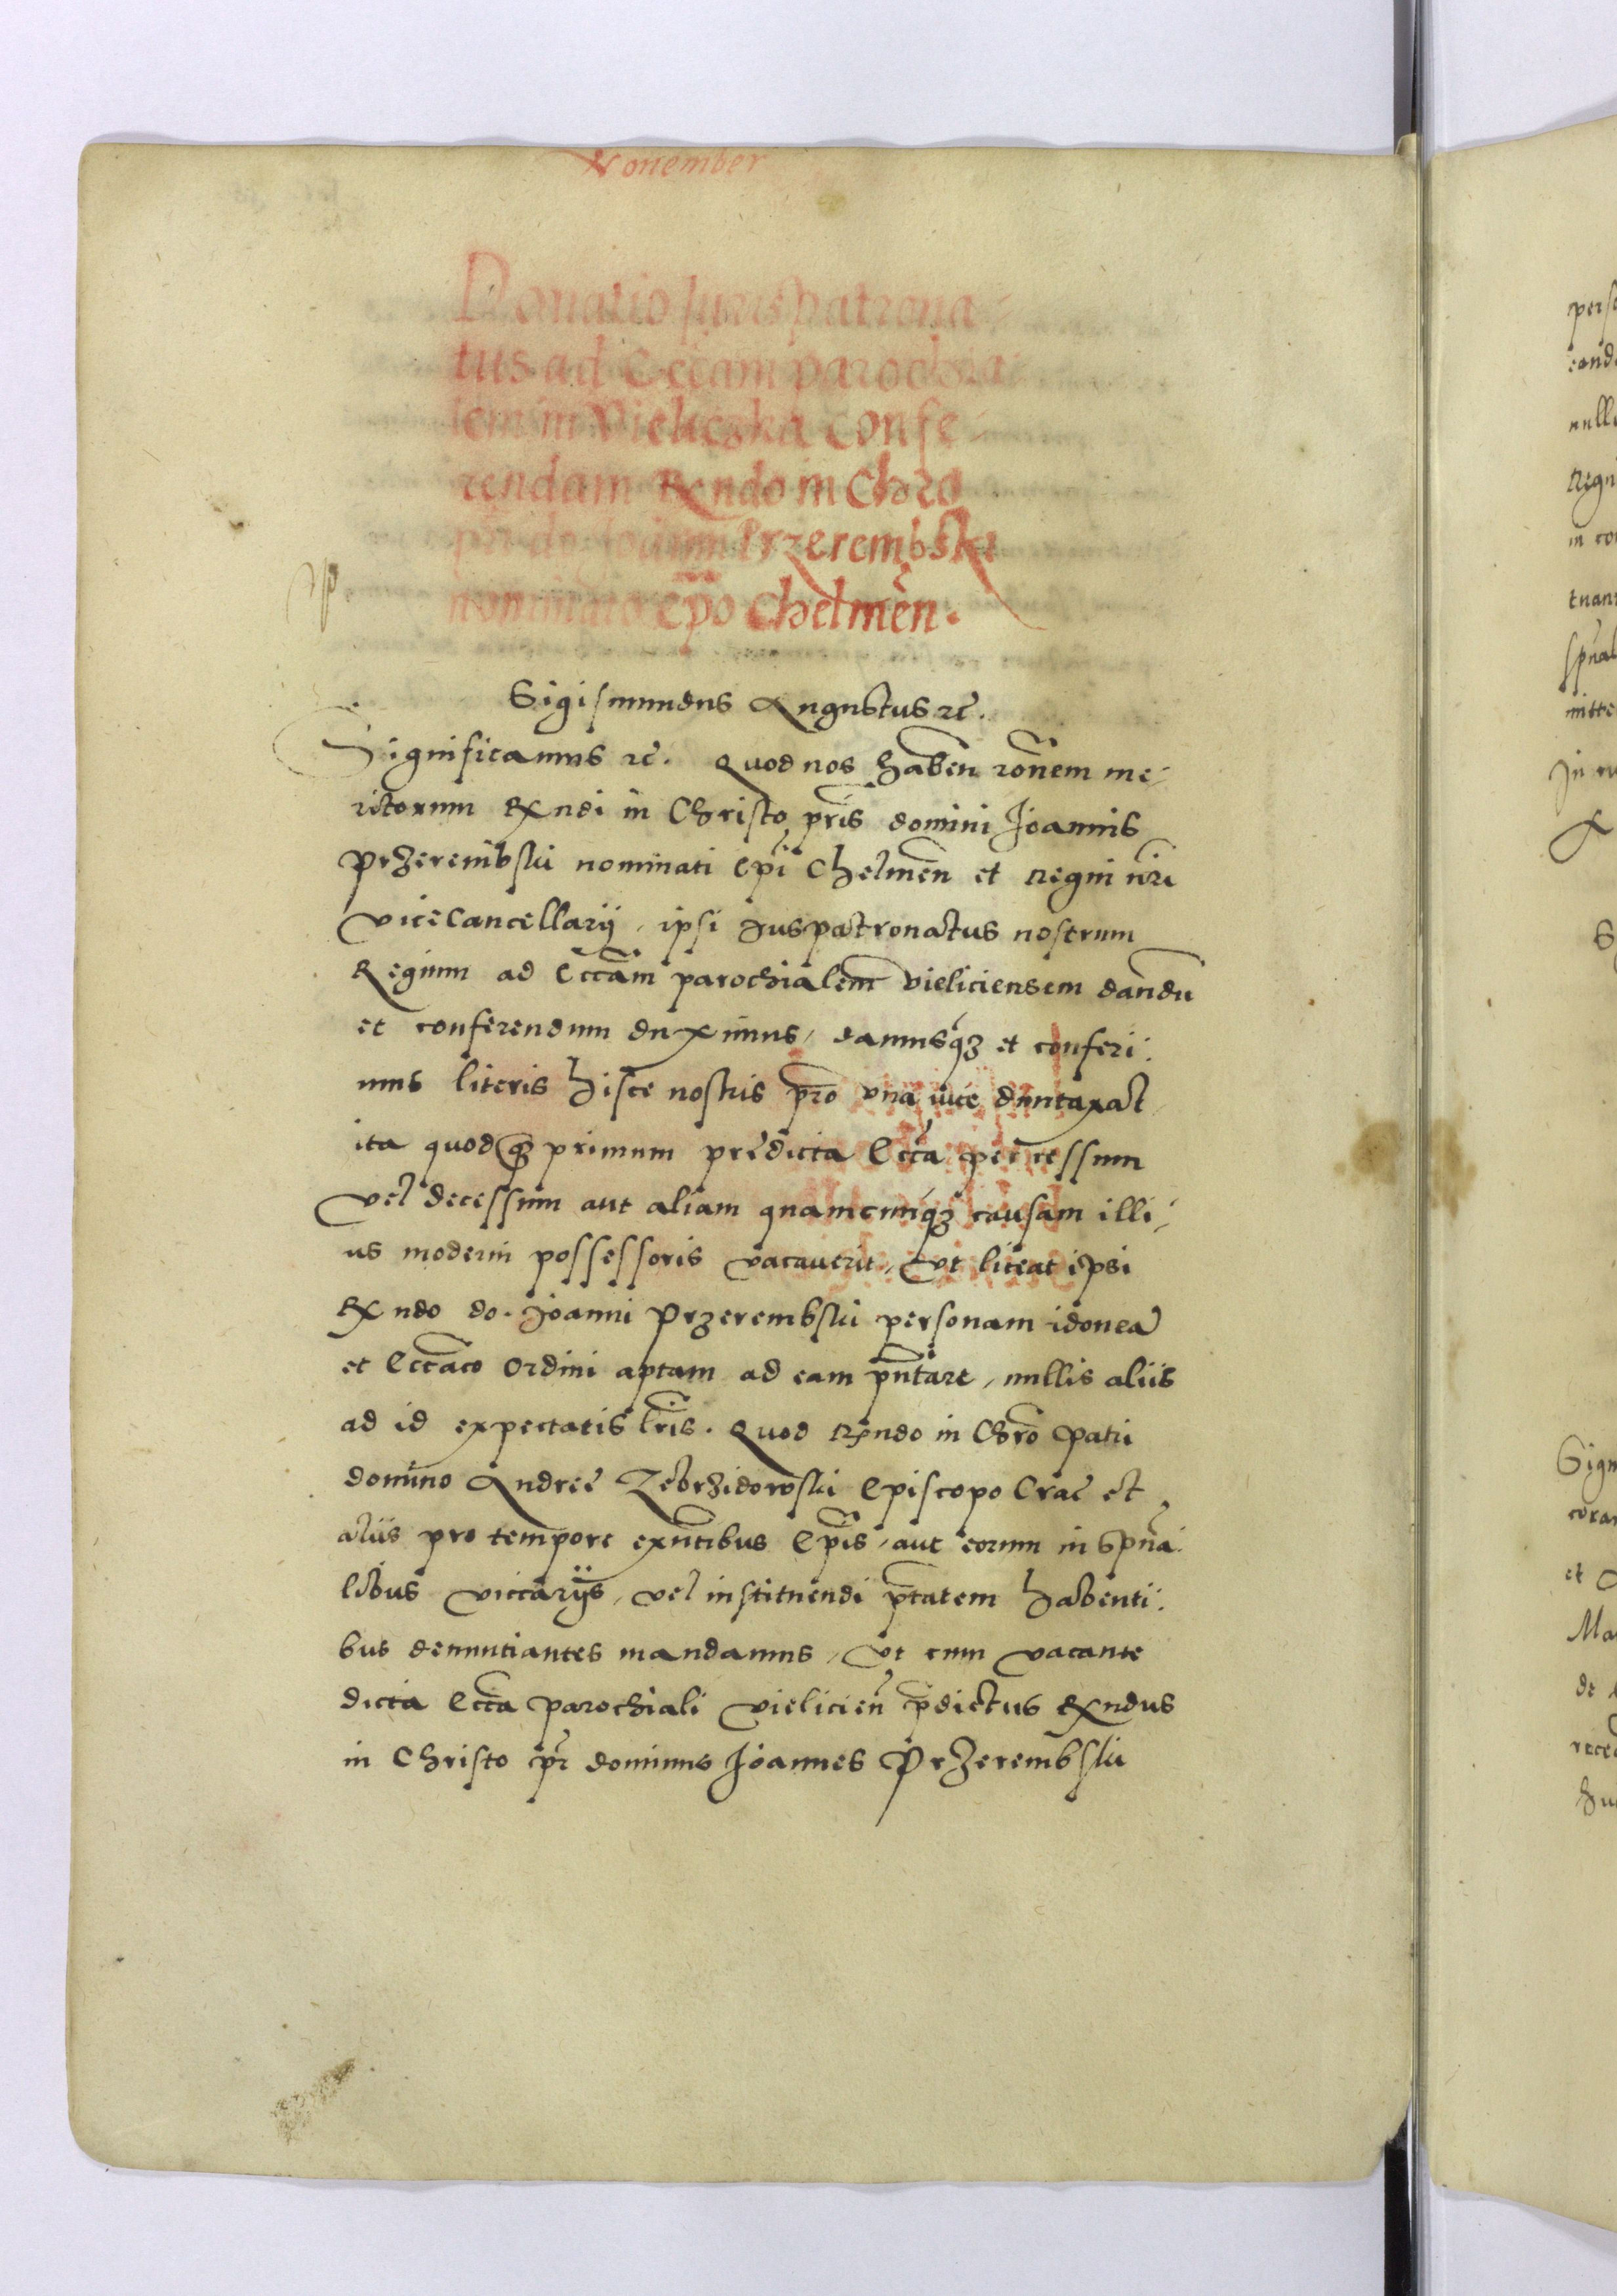 Nouember
Donatio Iurispatrona-
tus ad Eccãm parochia-
lem in Vieliczka confe-
rendam Rendo in Chro
pri do. Joanni Przerembski
nominato Epõ Chelmeñ.
Sigismundus Augustus rc.
Significamus rc. Quod nos habeñ rõnem me-
ritorum Rxndi in Christo pris domini Joannis
Przerembski nominati Epi Chelmeñ et Regni nri
Vicecancellarij, ipsi Juspatronatus nostrum
Regium ad Eccãm parochialem Vieliciensem dandũ
et conferendum duximus, damusq3 et conferi:
mus literis hisce nostris pro vna vice duntaxat,
ita quod q3 primum predicta Ecca per cessum
vel decessum aut aliam quamcunq3 causam illi-
us moderni possessoris vacauerit, Vt liceat ipsi
Rxndo do. Joanni Przerembski personam idoneã
et Eccãco Ordini aptam ad eam pñtare, nullis aliis
ad id expectatis lris. Quod Rxndo in Chro patri
domino Andreę Zebrzidowski Episcopo Crac et
aliis pro tempore exñtibus Epis, aut eorum in spũa:
libus viccarijs, vel instituendi ptatem habenti:
bus denuntiantes mandamus, Vt cum vacante
dicta Ecca parochiali Vielicieñ pdictus Rxndus
in Christo pr dominus Joannes Przerembski